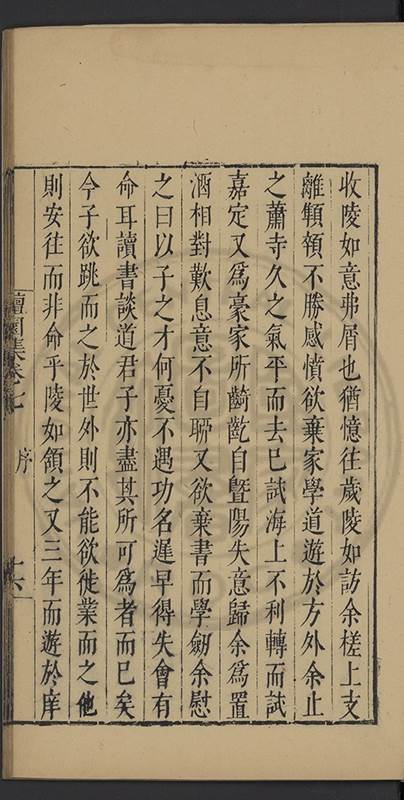 收陵如意弗屑也猶憶往歲陵如訪余槎上支
離顦顇不勝感憤欲棄家學道遊於方外余止
之蕭寺久之氣平而去已試海上不利轉而試
嘉定又爲豪家所齮齕自暨陽失意歸余爲置
酒相對歎息意不自聊又欲棄書而學劒余慰
之曰以子之才何憂不遇功名遲早得失會有
命耳讀書談道君子亦盡其所可爲者而已矣
今子欲跳而之於世外則不能欲徙業而之他
則安往而非命乎陵如頷之又三年而遊於庠
檀園集卷七
序
十六